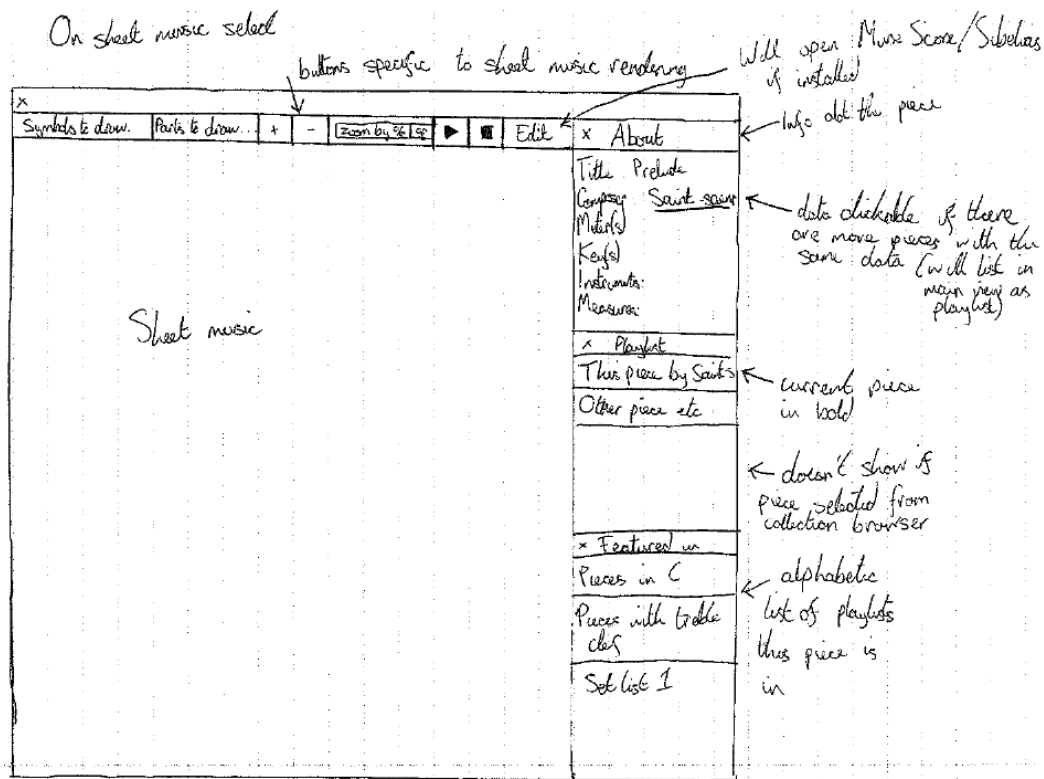 On sheet music select
buttons specific to sheet music rendering
Will open MuseScore/Sibelius
if installed
×
Symbols to draw.. Parts to draw... + - zoom by % ▶ ■ Edit
× About
Info abt the piece
Title Prelude
Composer Saint-saens
Meter(s)
Key(s)
Instruments:
Measures:
data clickable if there
are more pieces with the
same data (will list in
main view as
playlist)
Sheet music
× Playlist
This piece by Saints
Other piece etc
current piece
in bold
doesn't show if
piece selected from
collection browser
× Featured in
Pieces in C
Pieces with treble
clef
Set list 1
alphabetic
list of playlists
this piece is
in